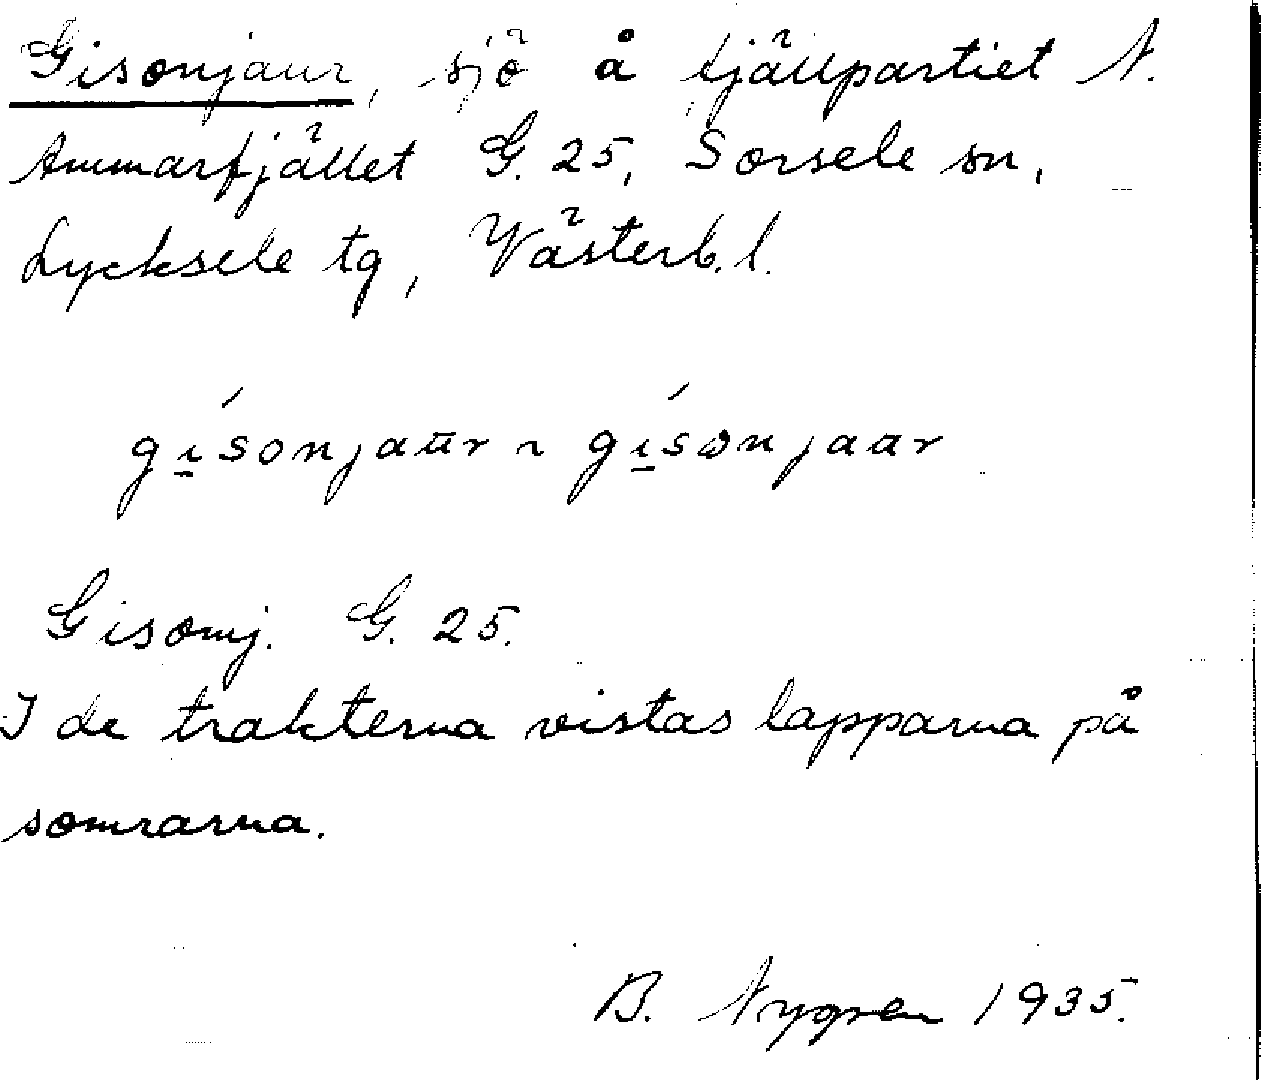 Gisonjaur, sjö å fjällpartiet N.
Ammarfjället G. 25, Sorsele sn,
Lycksele tg, Västerb. l.
gi̱sónjaūr ~ gi̱sónjaar
Gisonj. G. 25.
I de trakterna vistas lapparna på
somrarna.
B. Nygren 1935.